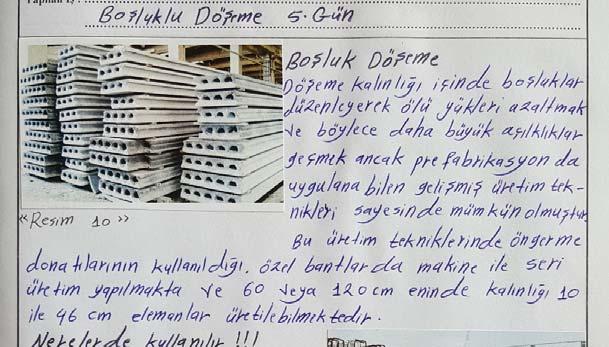 Boşluklu Döşeme 5. Gün
Boşluk Döşeme
Döşeme kalınlığı içinde boşluklar
düzenleyerek ölü yükleri azaltmak
ve böylece daha büyük açıklıklar
geçmek ancak prefabrikasyon da
uygulana bilen gelişmiş üretim tek-
nikleri sayesinde mümkün olmuştur.
«Resim 10»
Bu üretim tekniklerinde öngerme
donatılarının kullanıldığı. özel bantlarda makine ile seri
üretim yapılmakta ve 60 veya 120 cm eninde kalınlığı 10
ile 46 cm elemanlar üretilebilmektedir.
Nerelerde kullanılır !!!